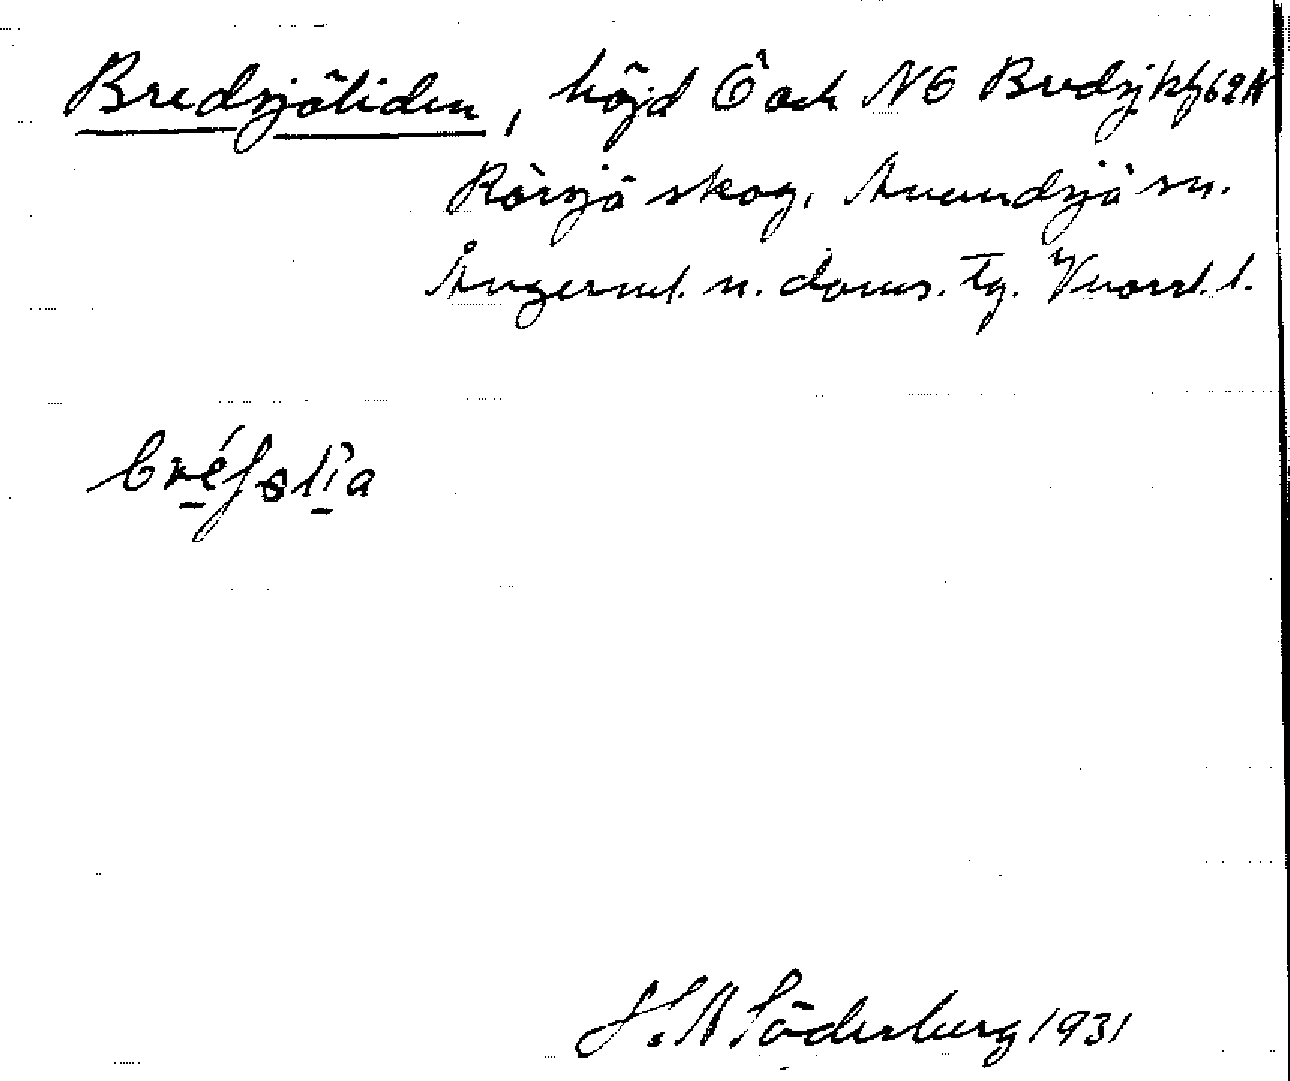 Bredsjöliden, höjd Ö och NÖ Bredsj kbl 62 N
Rörsjö skog, Anundsjö sn.
Ångerml. n. doms. tg. Vnorrl. l.
bréʃslìa
S. A Söderberg 1931